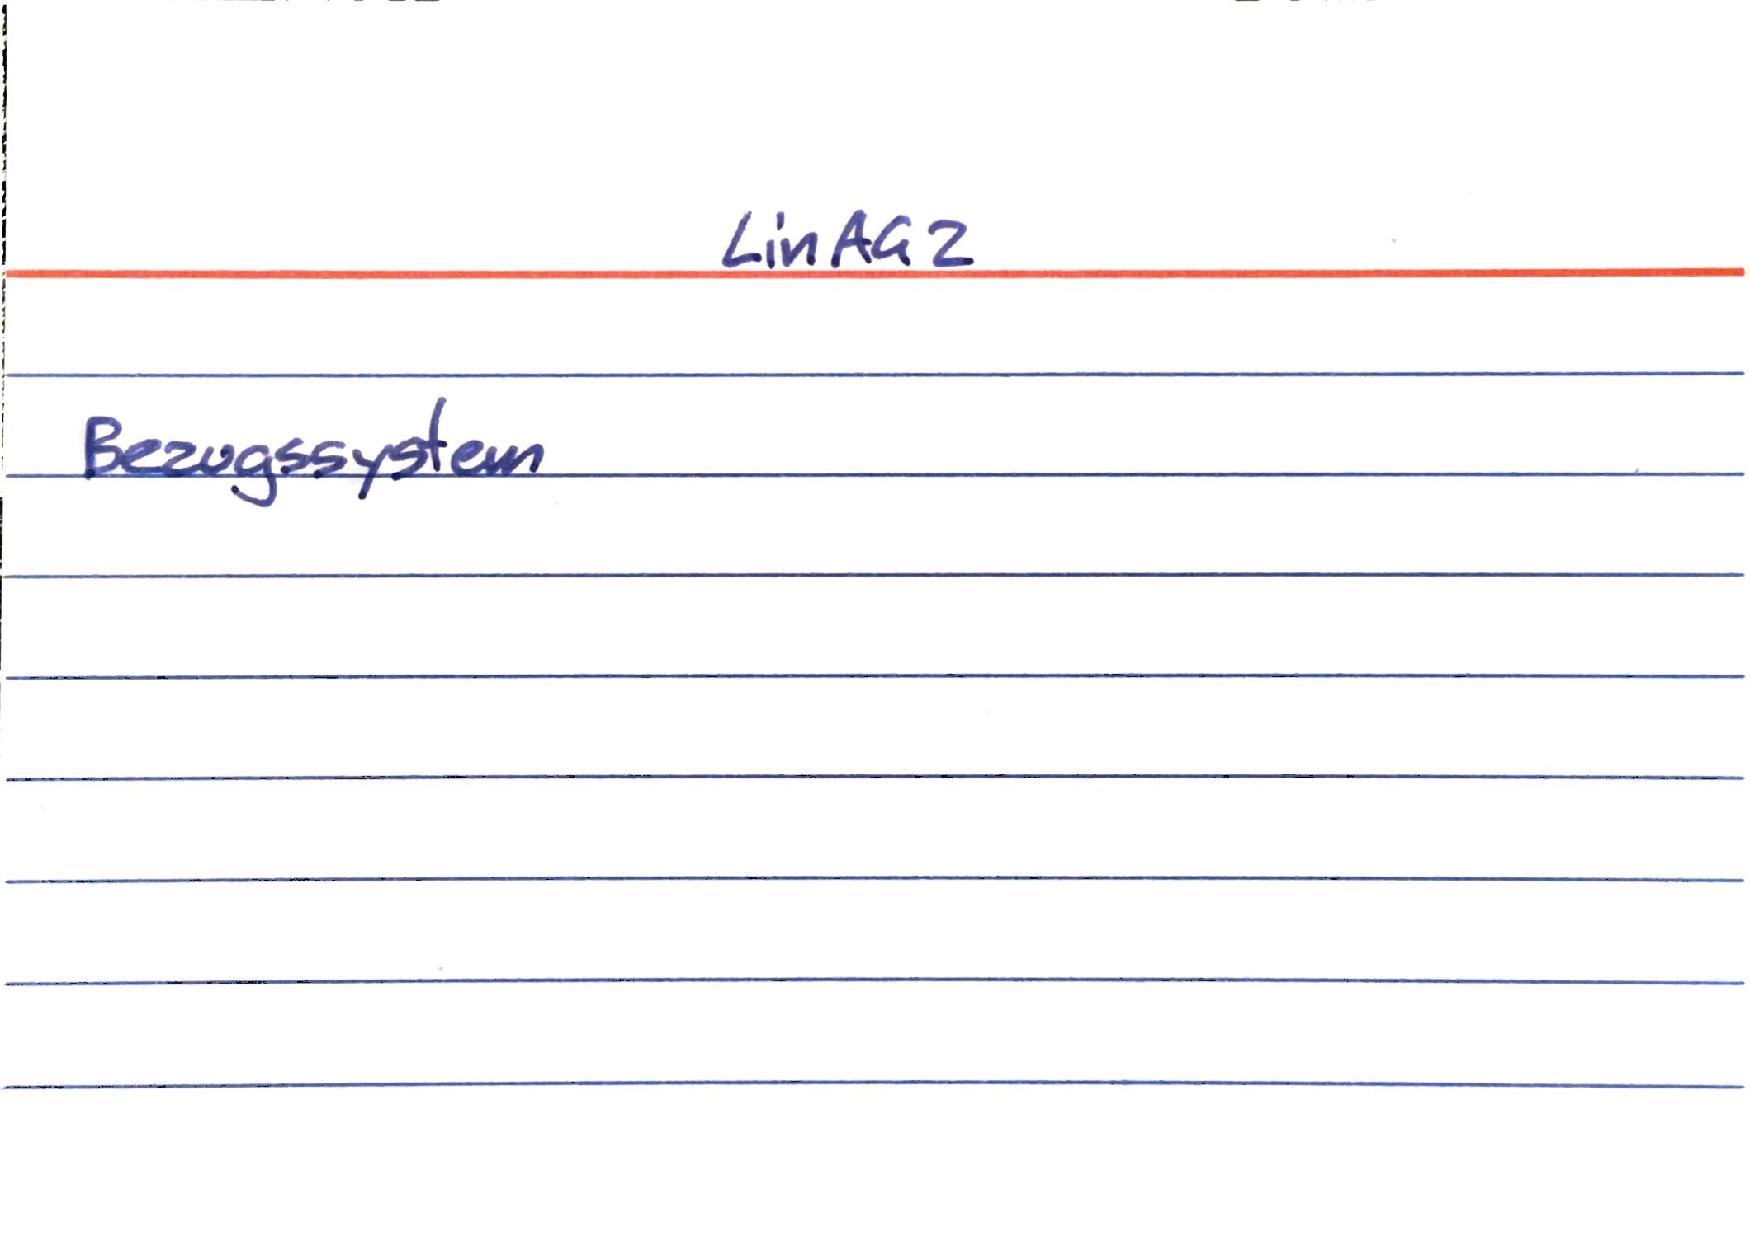 LinAG 2
Bezugssystem